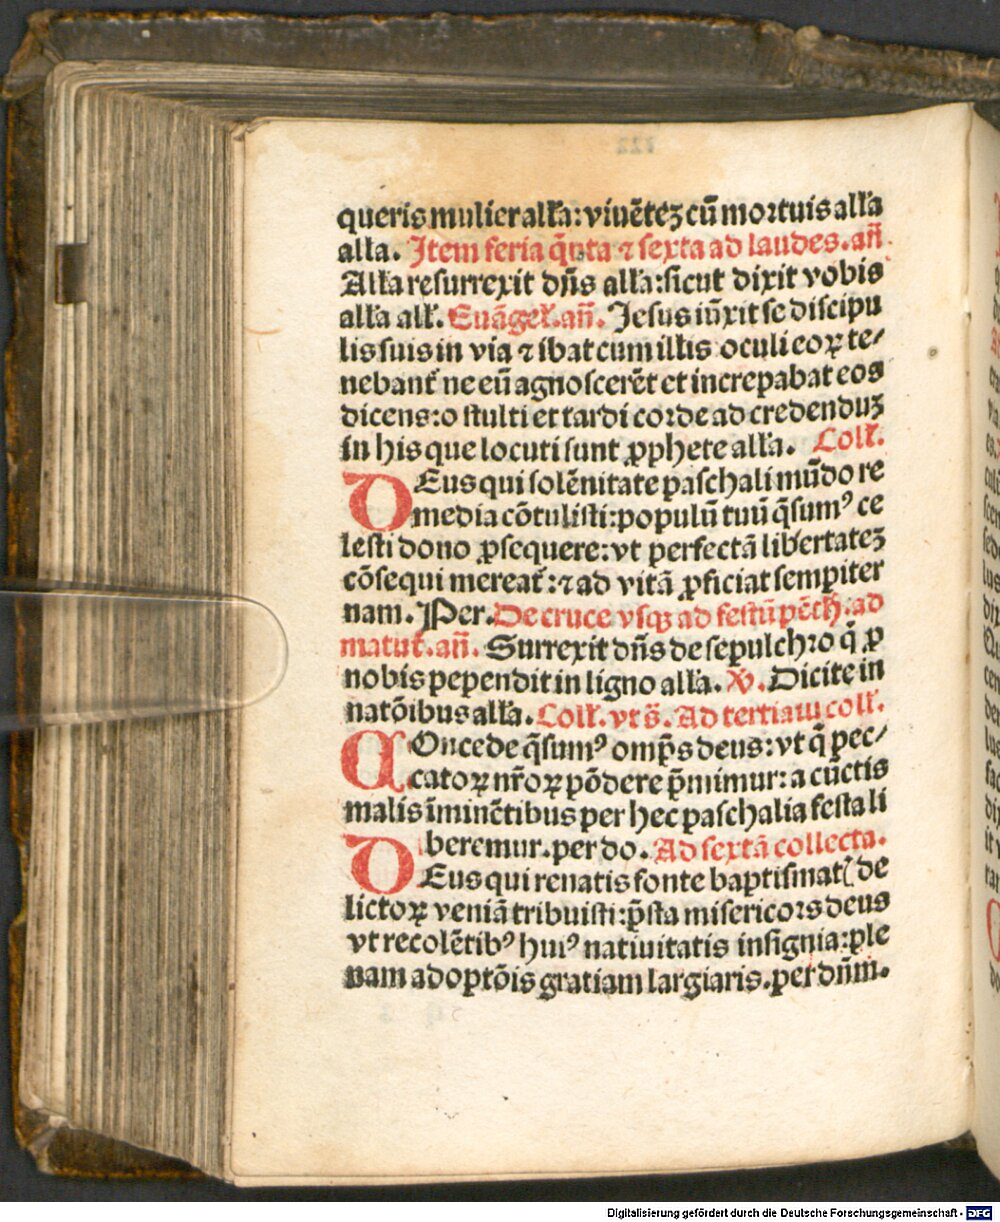 queris mulier alľa: viuēteꝫ cū mortuis alľa
alľa. Item feria q̄nta ⁊ sexta ad laudes. añ.
Alľa resurrexit dñs alľa: sicut dixit vobis
alľa alľ. Euāgeľ. añ. Jesus iūxit se discipu
lis suis in via ⁊ ibat cum illis oculi eoꝝ te⸗
nebant̄ ne eū agnoscerēt et increpabat eos
dicens: o stulti et tardi corde ad credenduꝫ
in his que locuti sunt ꝓphete alľa. Colľ.
DEus qui solēnitate paschali mūdo re
media cōtulisti: populū tuū q̄sumꝰ ce
lesti dono ꝓsequere: vt perfectā libertateꝫ
cōsequi mereat̄: ⁊ ad vitā ꝓficiat sempiter
nam. Per. De cruce vsqꝫ ad festū pēth. ad
matut̄. añ. Surrexit dñs de sepulchro q̄ ꝓ
nobis pependit in ligno alľa. ℣. Dicite in
natōibus alľa. Colľ. vt s̄. Ad tertiam colľ.
COncede q̄sumꝰ omp̄s deus: vt q̄ pec⸗
catoꝝ nr̄oꝝ pōdere p̄mimur: a cūctis
malis īminētibus per hec paschalia festa li
beremur. per do. Ad sextā collecta.
DEus qui renatis fonte baptismatꝭ de
lictoꝝ veniā tribuisti: p̄sta misericors deus
vt recolētibꝰ huiꝰ natiuitatis insignia: ple
nam adoptōis gratiam largiaris. per dñm.
Digitalisierung gefördert durch die Deutsche Forschungsgemeinschaft - DFG